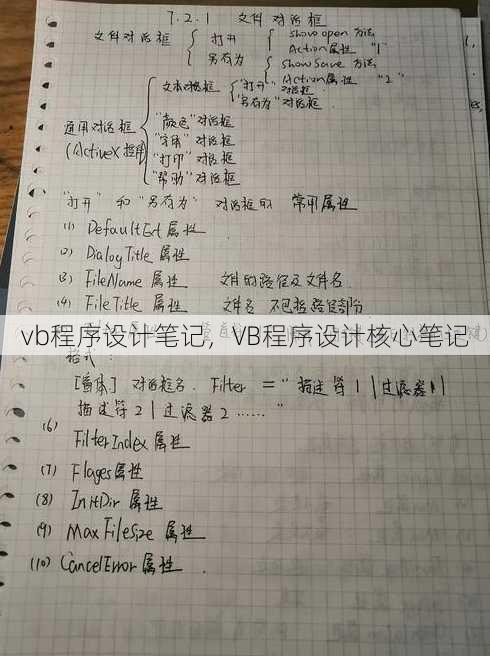 7.2.1 文件对话框
文件对话框 打开 show open 方法
Action属性 "1"
另存为 show save 方法
Action属性 "2"
通用对话框 (ActiveX 控件)
文件对话框 "打开"对话框
"另存为"对话框
"颜色"对话框
"字体"对话框
"打印"对话框
"帮助"对话框
"打开" 和 "另存为" 对话框的 常用属性
(1) DefaultExt 属性
(2) DialogTitle 属性
(3) FileName 属性 文件的路径及文件名
(4) FileTitle 属性 文件名 不包括路径部分
vb程序设计笔记，VB程序设计核心笔记
格式:
[窗体] 对话框名. Filter = "描述符1|过滤器1|
描述符2|过滤器2 ……"
(6) FilterIndex 属性
(7) Flages属性
(8) InitDir 属性
(9) MaxFileSize 属性
(10) CancelError 属性.